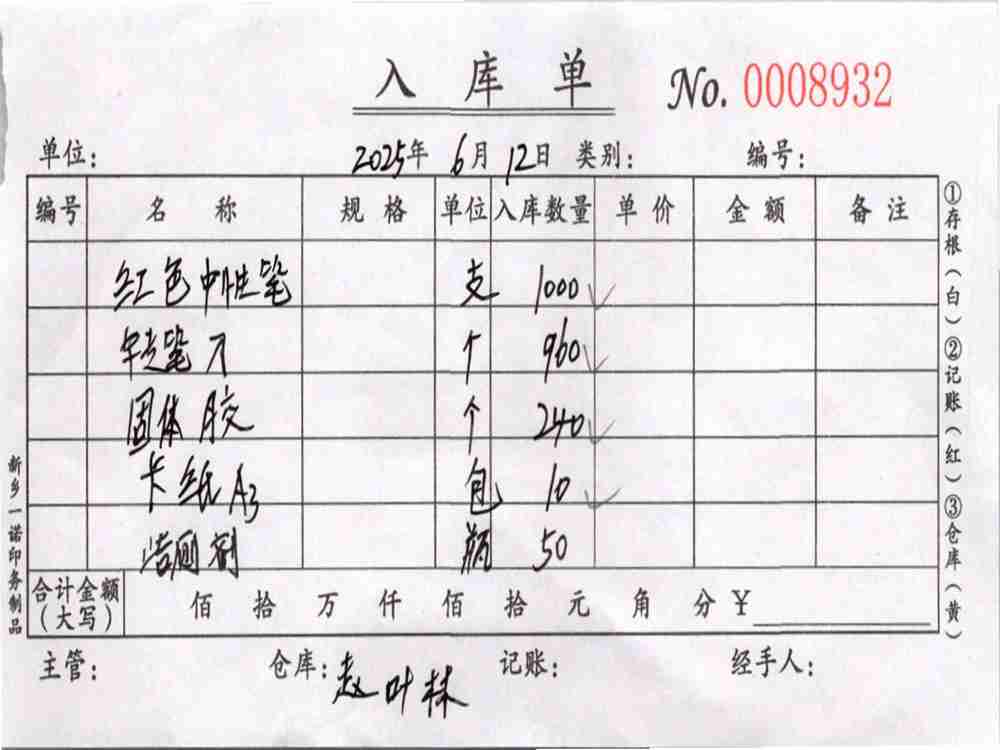 入库单 No. 0008932
单位: 2025年 6月 12日 类别: 编号:
编号 名称 规格 单位 入库数量 单价 金额 备注
红色中性笔 支 1000
转笔刀 个 960
固体胶 个 240
卡纸A3 包 10
洁厕剂 瓶 50
合计金额(大写) 佰 拾 万 仟 佰 拾 元 角 分 ¥
主管: 仓库:赵叶林 记账: 经手人:
①存根(白)②记账(红)③仓库(黄)
新乡一诺印务制品